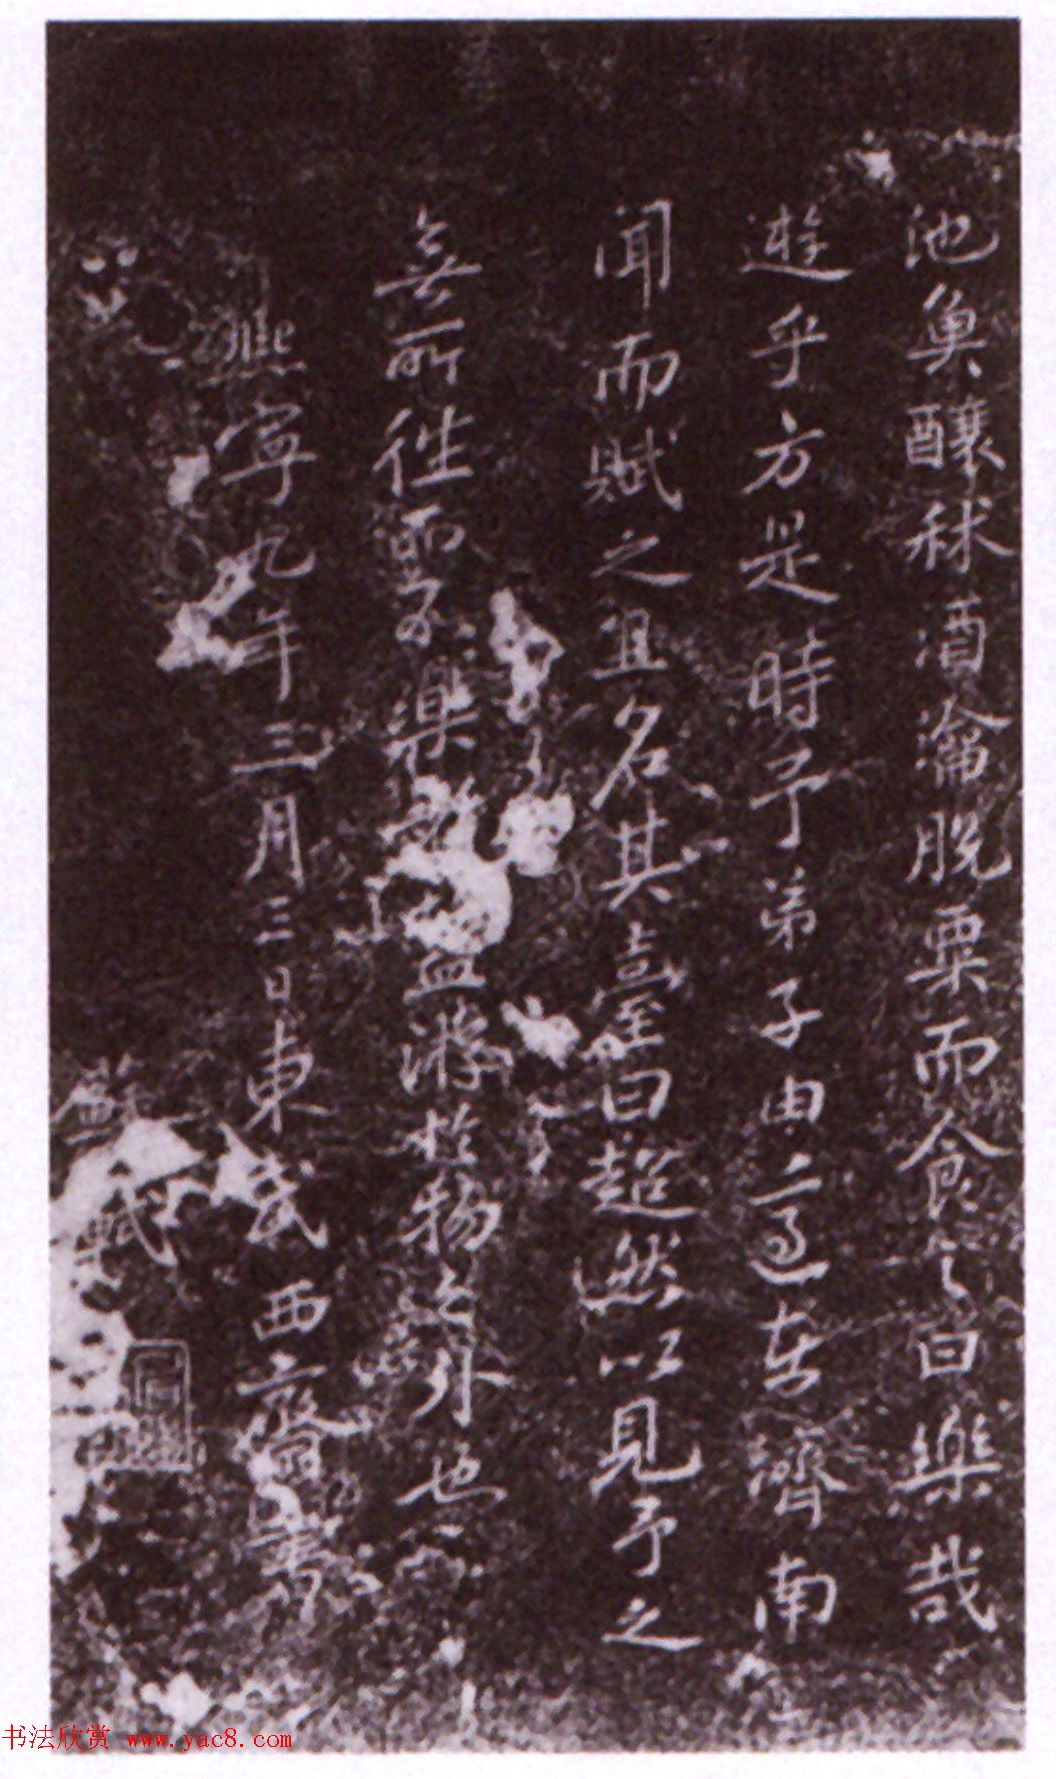 池魚釀秫酒瀹脫粟而食之曰樂哉
遊乎方是時予弟子由適在濟南
聞而賦之且名其臺曰超然以見予之
無所往而不樂者蓋游於物之外也
熙寧九年三月三日東武西齋書
蘇軾
书法欣赏 www.yac8.com